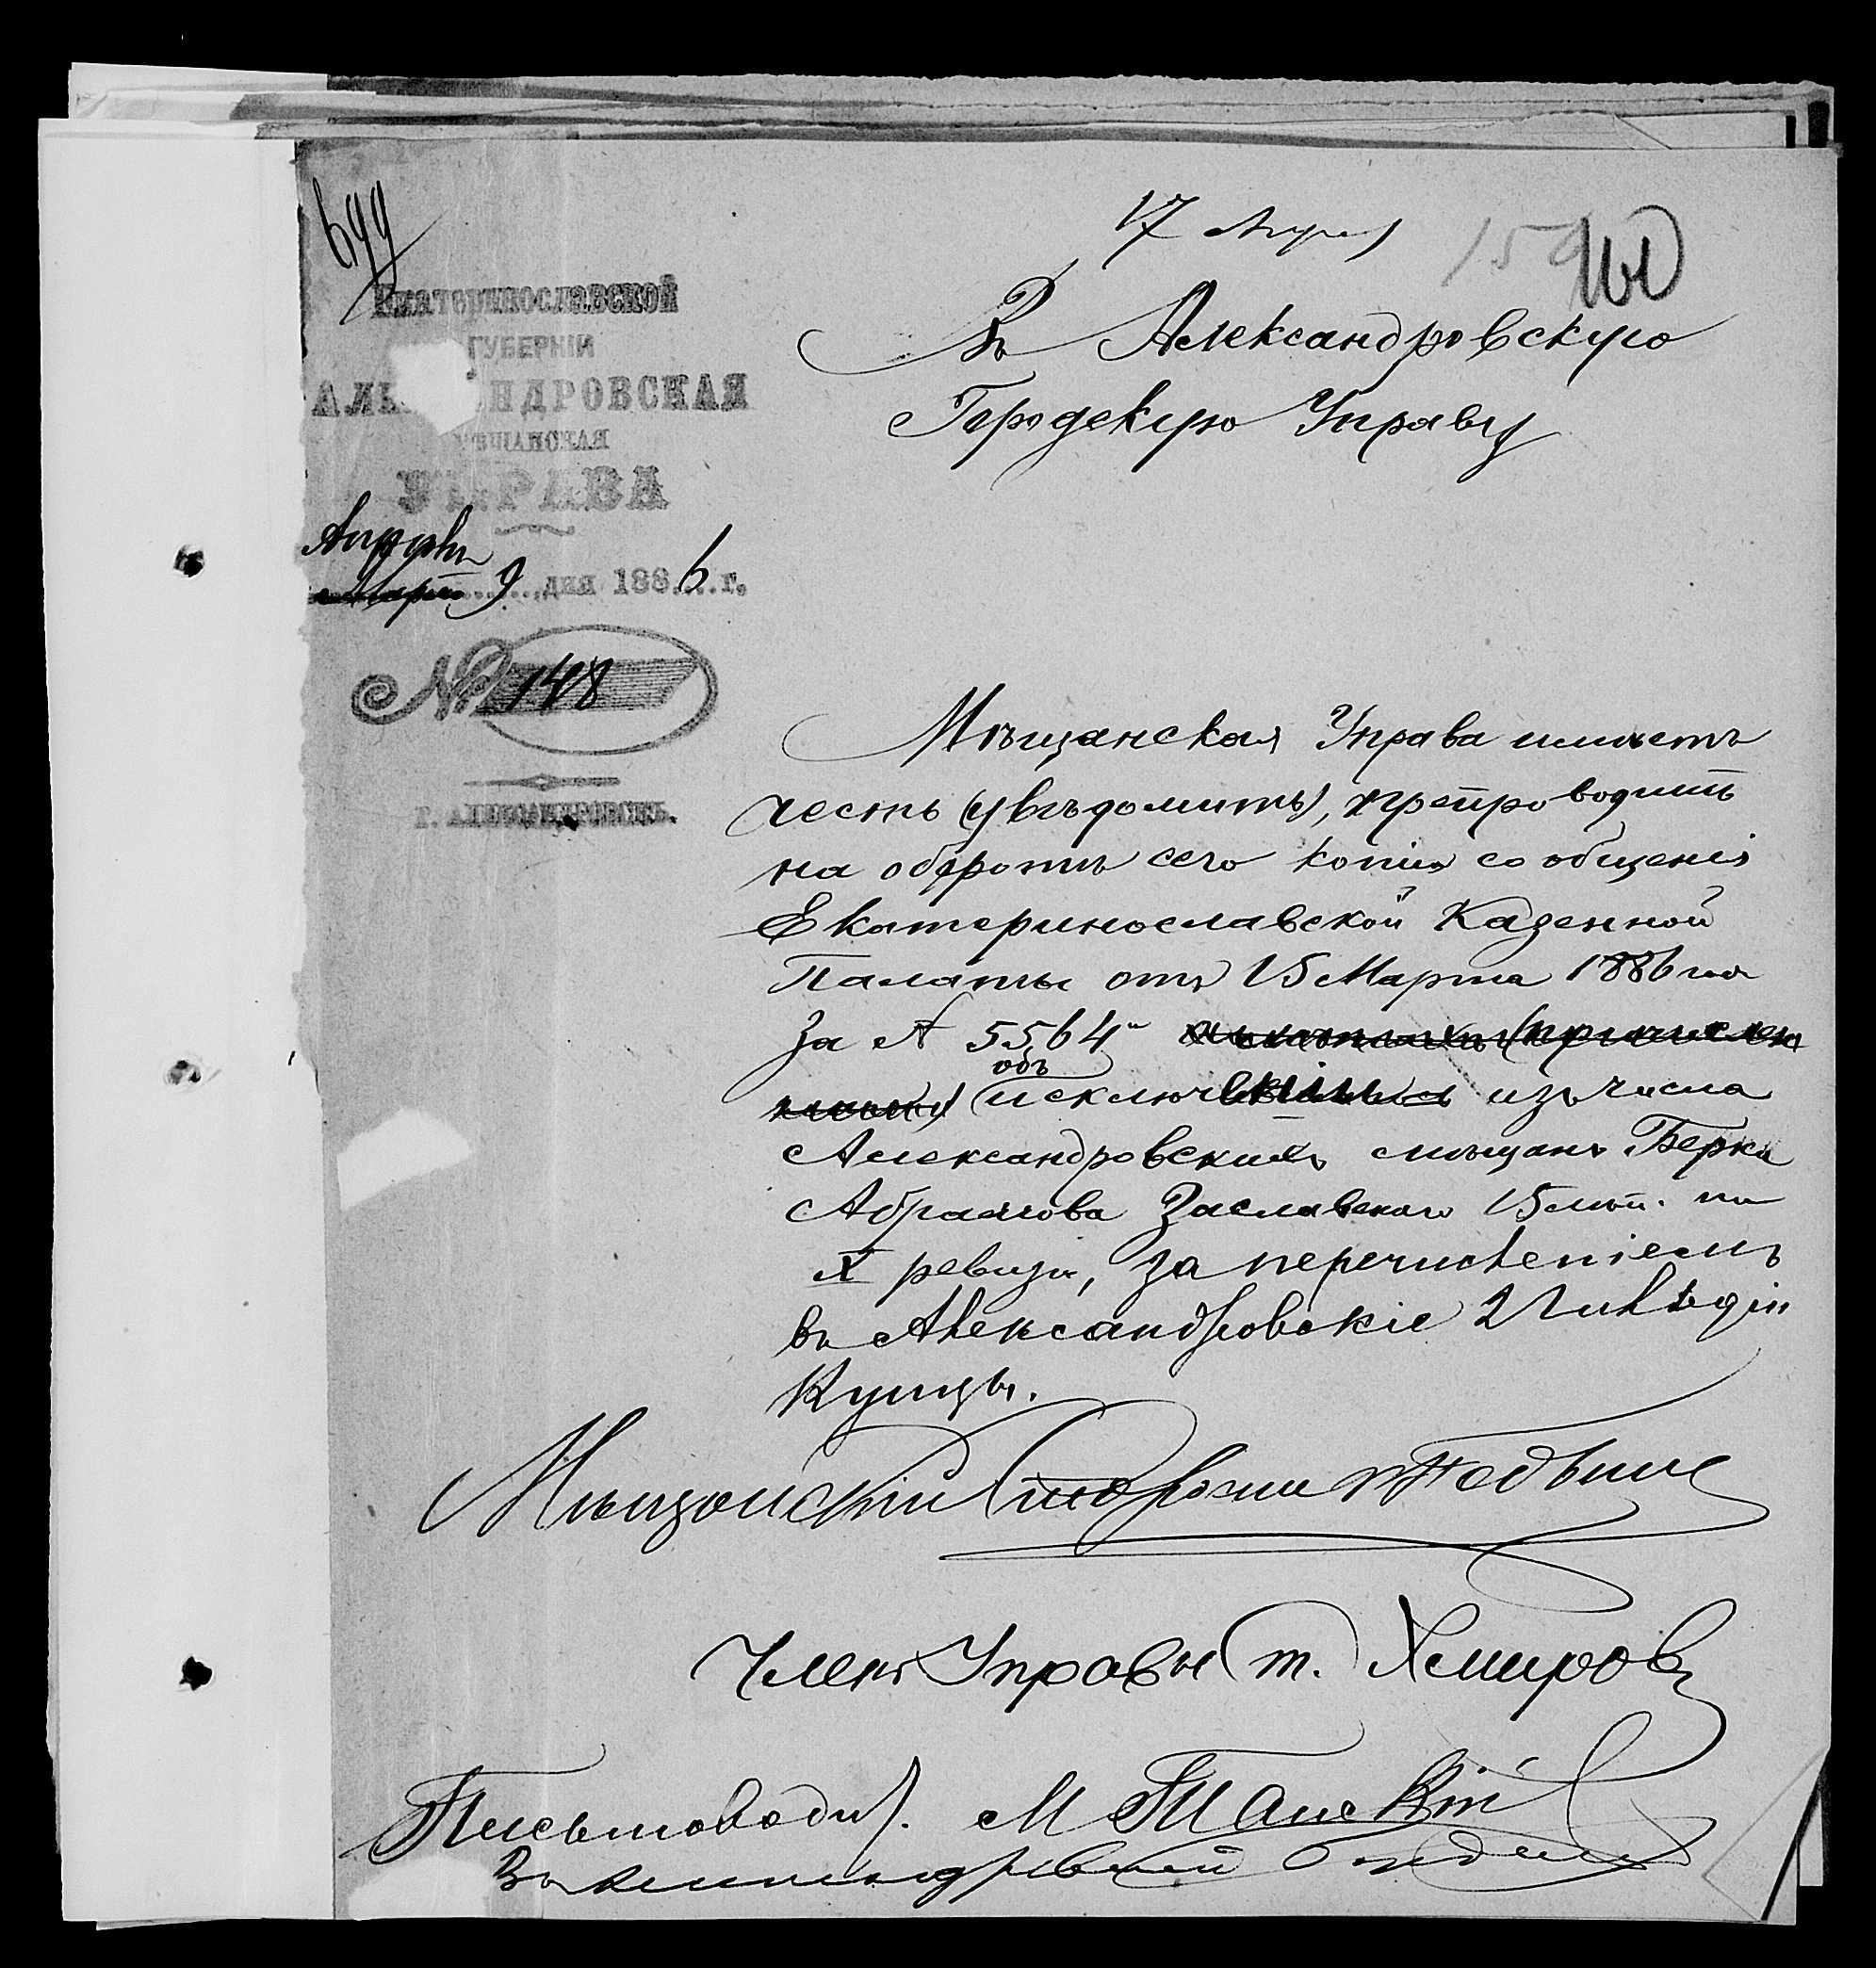 699
17 Апрел
159
160
ЕКАТЕРИНОСЛАВСКОЙ
ГУБЕРНІИ
АЛЕ НДРОВСКАЯ
ѢЩАНСКАЯ
УПРАВА
Апрѣля
Марта 9 дня 1886 г.
№ 148
Г. АЛЕКСАНДРОВСКЪ.
Въ Александровскую
Городскую Управу
Мѣщанская Управа имѣетъ
честь (увѣдомить), препроводить
на оборотѣ сего копію сообщенія
Екатеринославской Казенной
Палаты отъ 15 Марта 1886 года
за № 5564
объ
исключ изъ числа
Александровскихъ мѣщанъ Берка
Абрамова Заславскаго 15 лѣт. по
X ревизіи, за перечисленіемъ
въ Александровскіе 2 Гильдіи
Купцы.
Мѣщанскій Староста
Членъ Управы т. Хемировъ
Письмовод. М